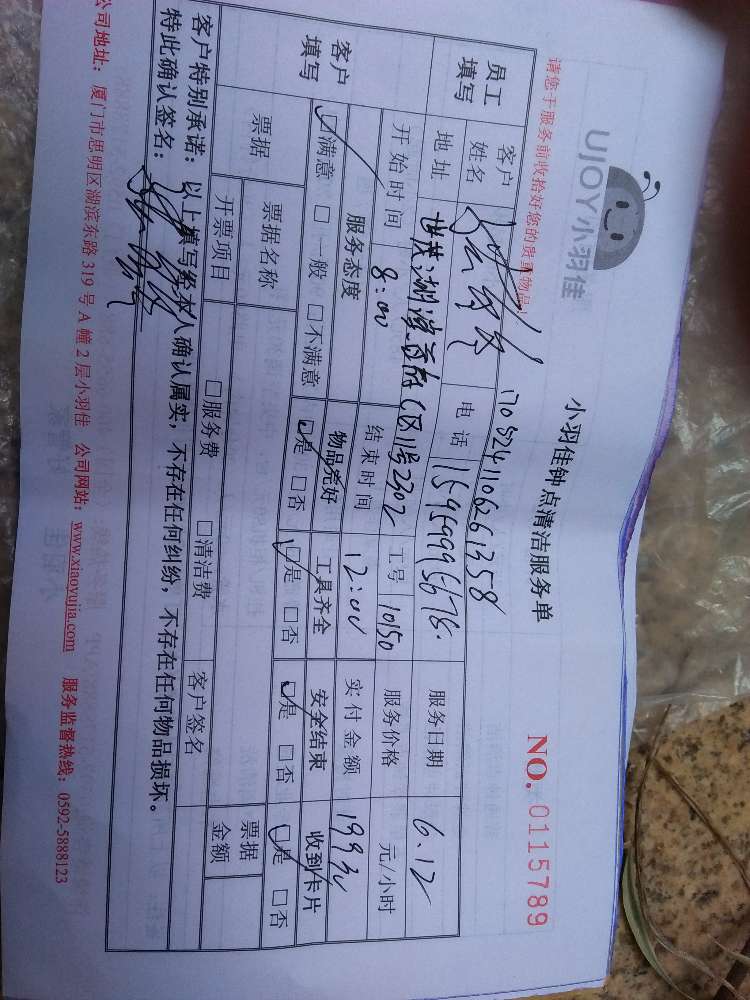 UJOY小羽佳
小羽佳钟点清洁服务单
NO. 0115789
请您于服务前收拾好您的贵重物品！
1705241106261358
员工填写
客户姓名
电话 15959995676.
服务日期 6.12
地址
C区11号2302
工号 10150
服务价格 元/小时
开始时间 8:00
结束时间 12:00
实付金额 199元
客户填写
服务态度 物品完好 工具齐全 安全结束 收到卡片
☑满意 □一般 □不满意 ☑是 □否 ☑是 □否 ☑是 □否 ☑是 □否
票据
票据名称
票据金额
开票项目 □服务费 □清洁费 客户签名
客户特别承诺：以上填写经本人确认属实，不存在任何纠纷，不存在任何物品损坏。
特此确认签名：
公司地址：厦门市思明区湖滨东路 319 号 A 幢 2 层小羽佳 公司网站：www.xiaoyujia.com 服务监督热线：0592-5888123